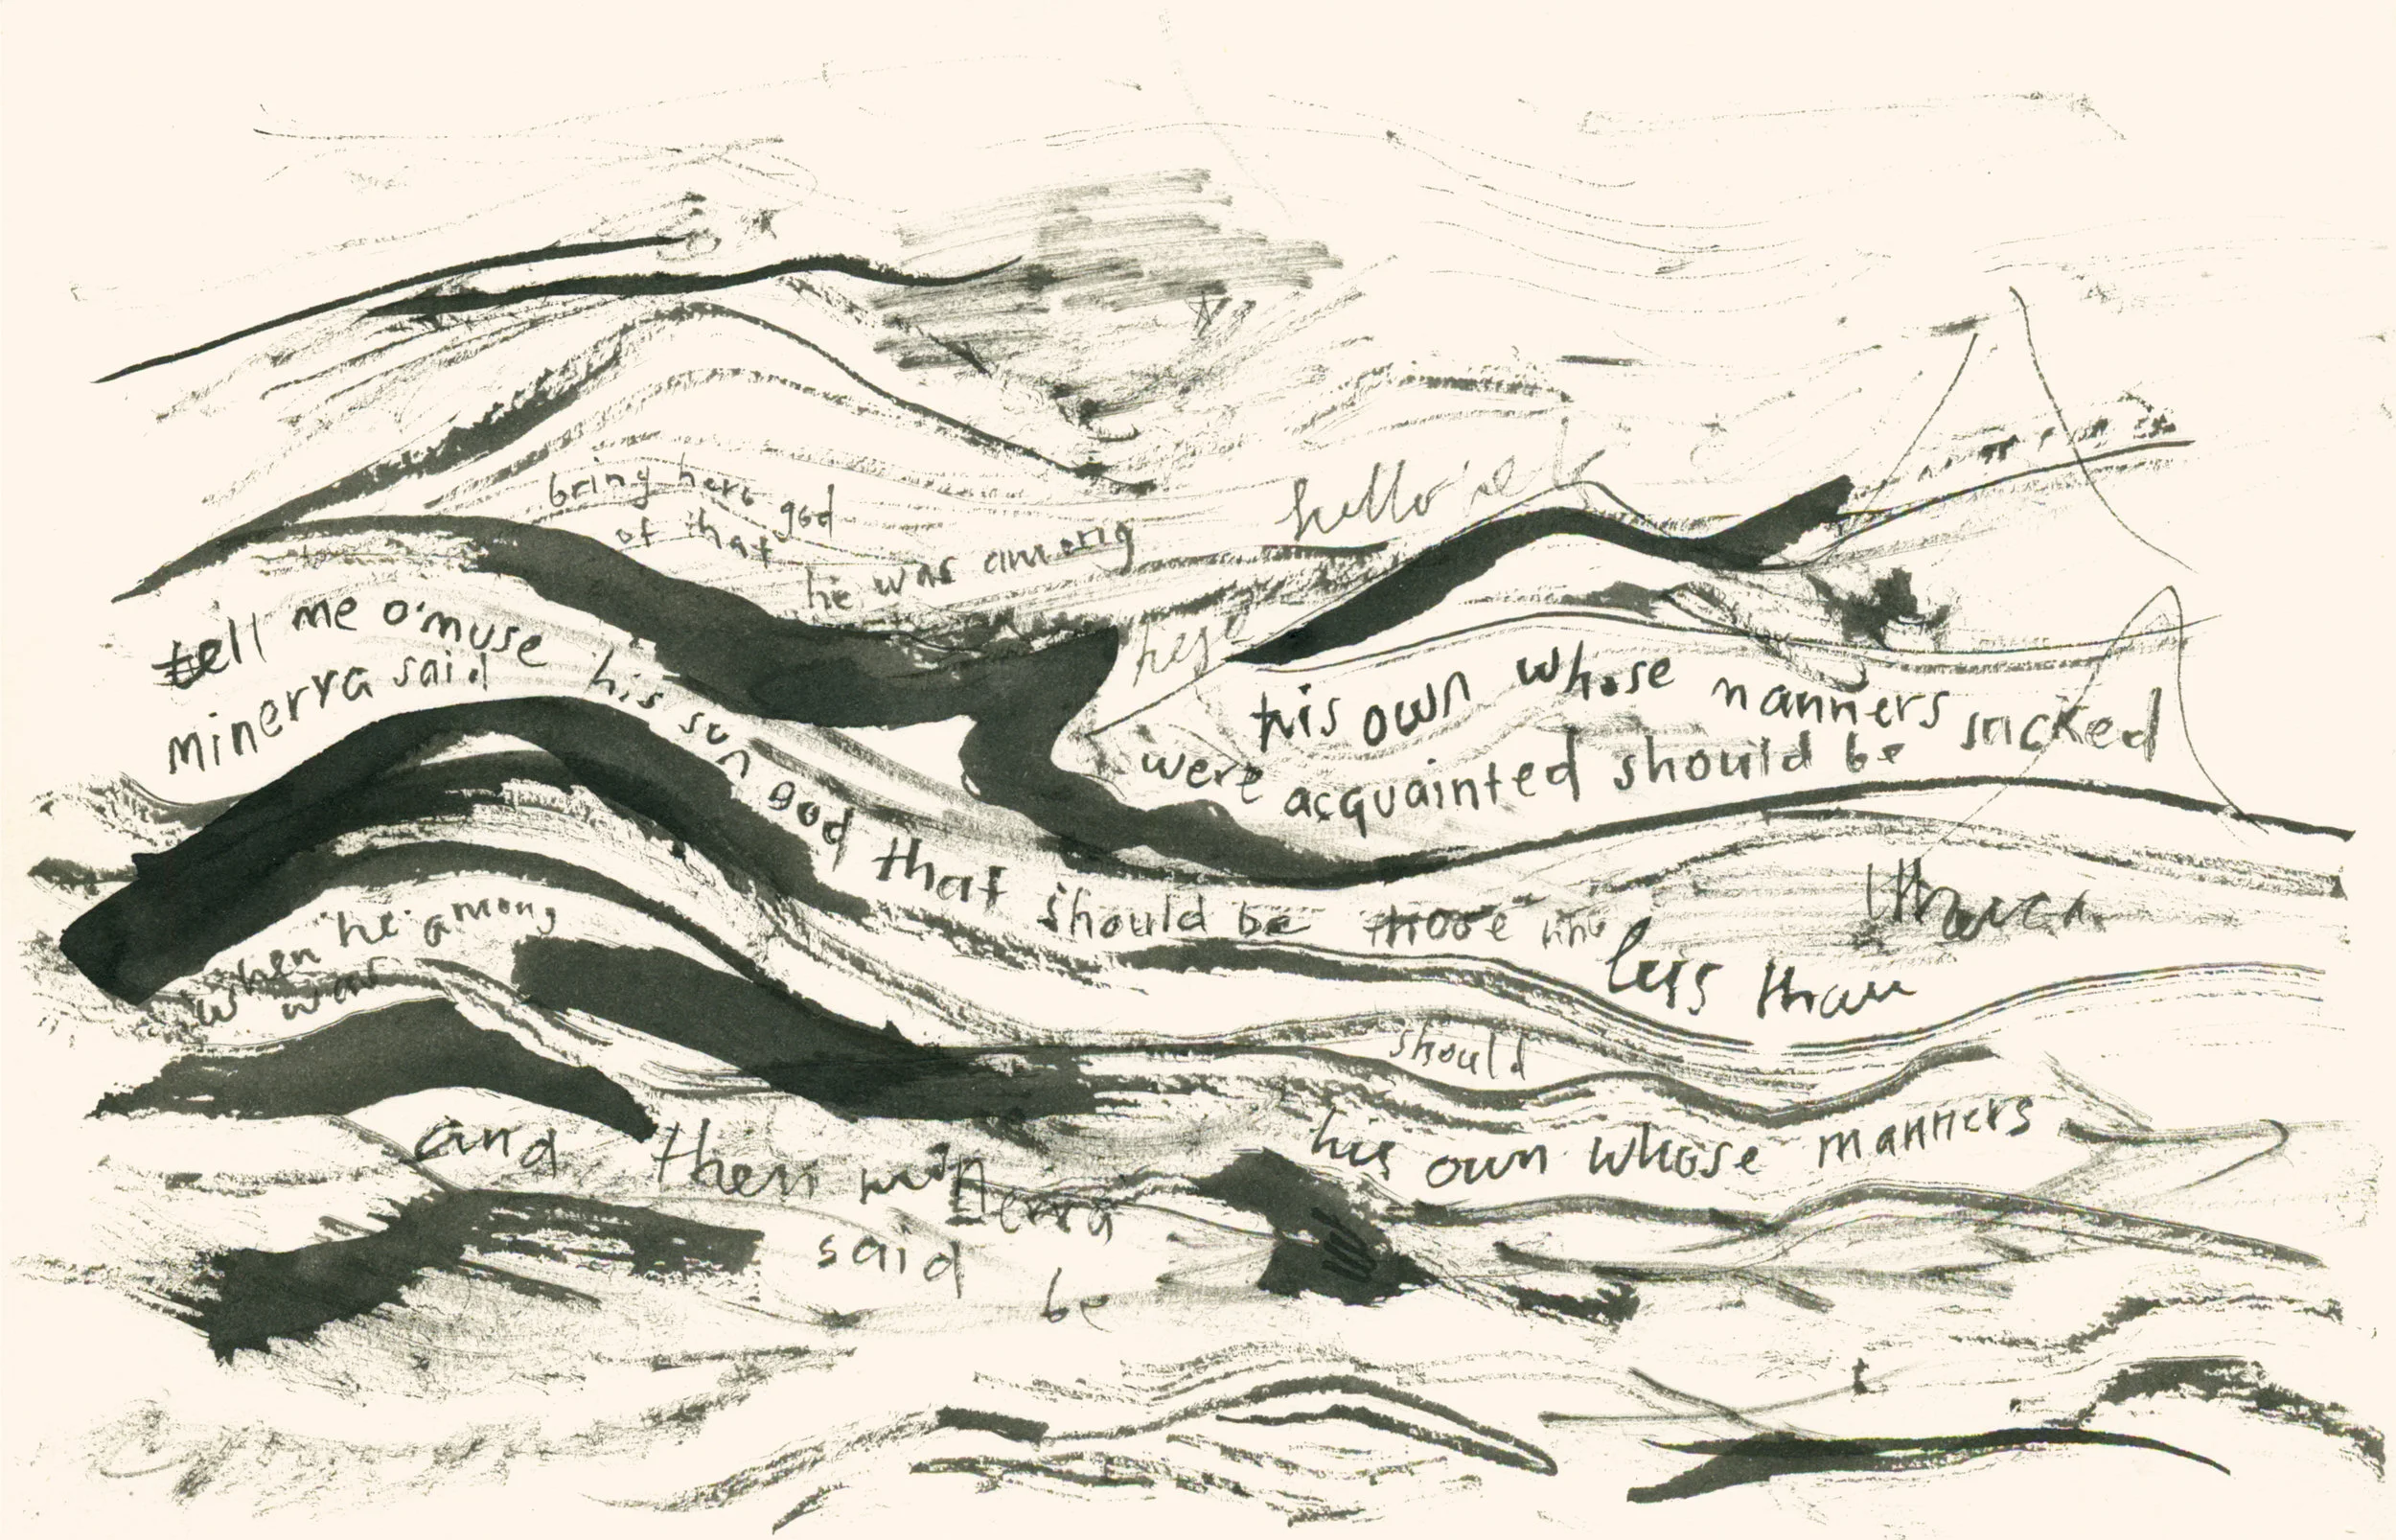 bring here god
of that
he was among
hello
tell me o'muse
minerva said
his sun god that should be
his own whose manners sacked
were acquainted should be
less than
when he among
was
should
his own whose manners
and then minerva
said
be
t